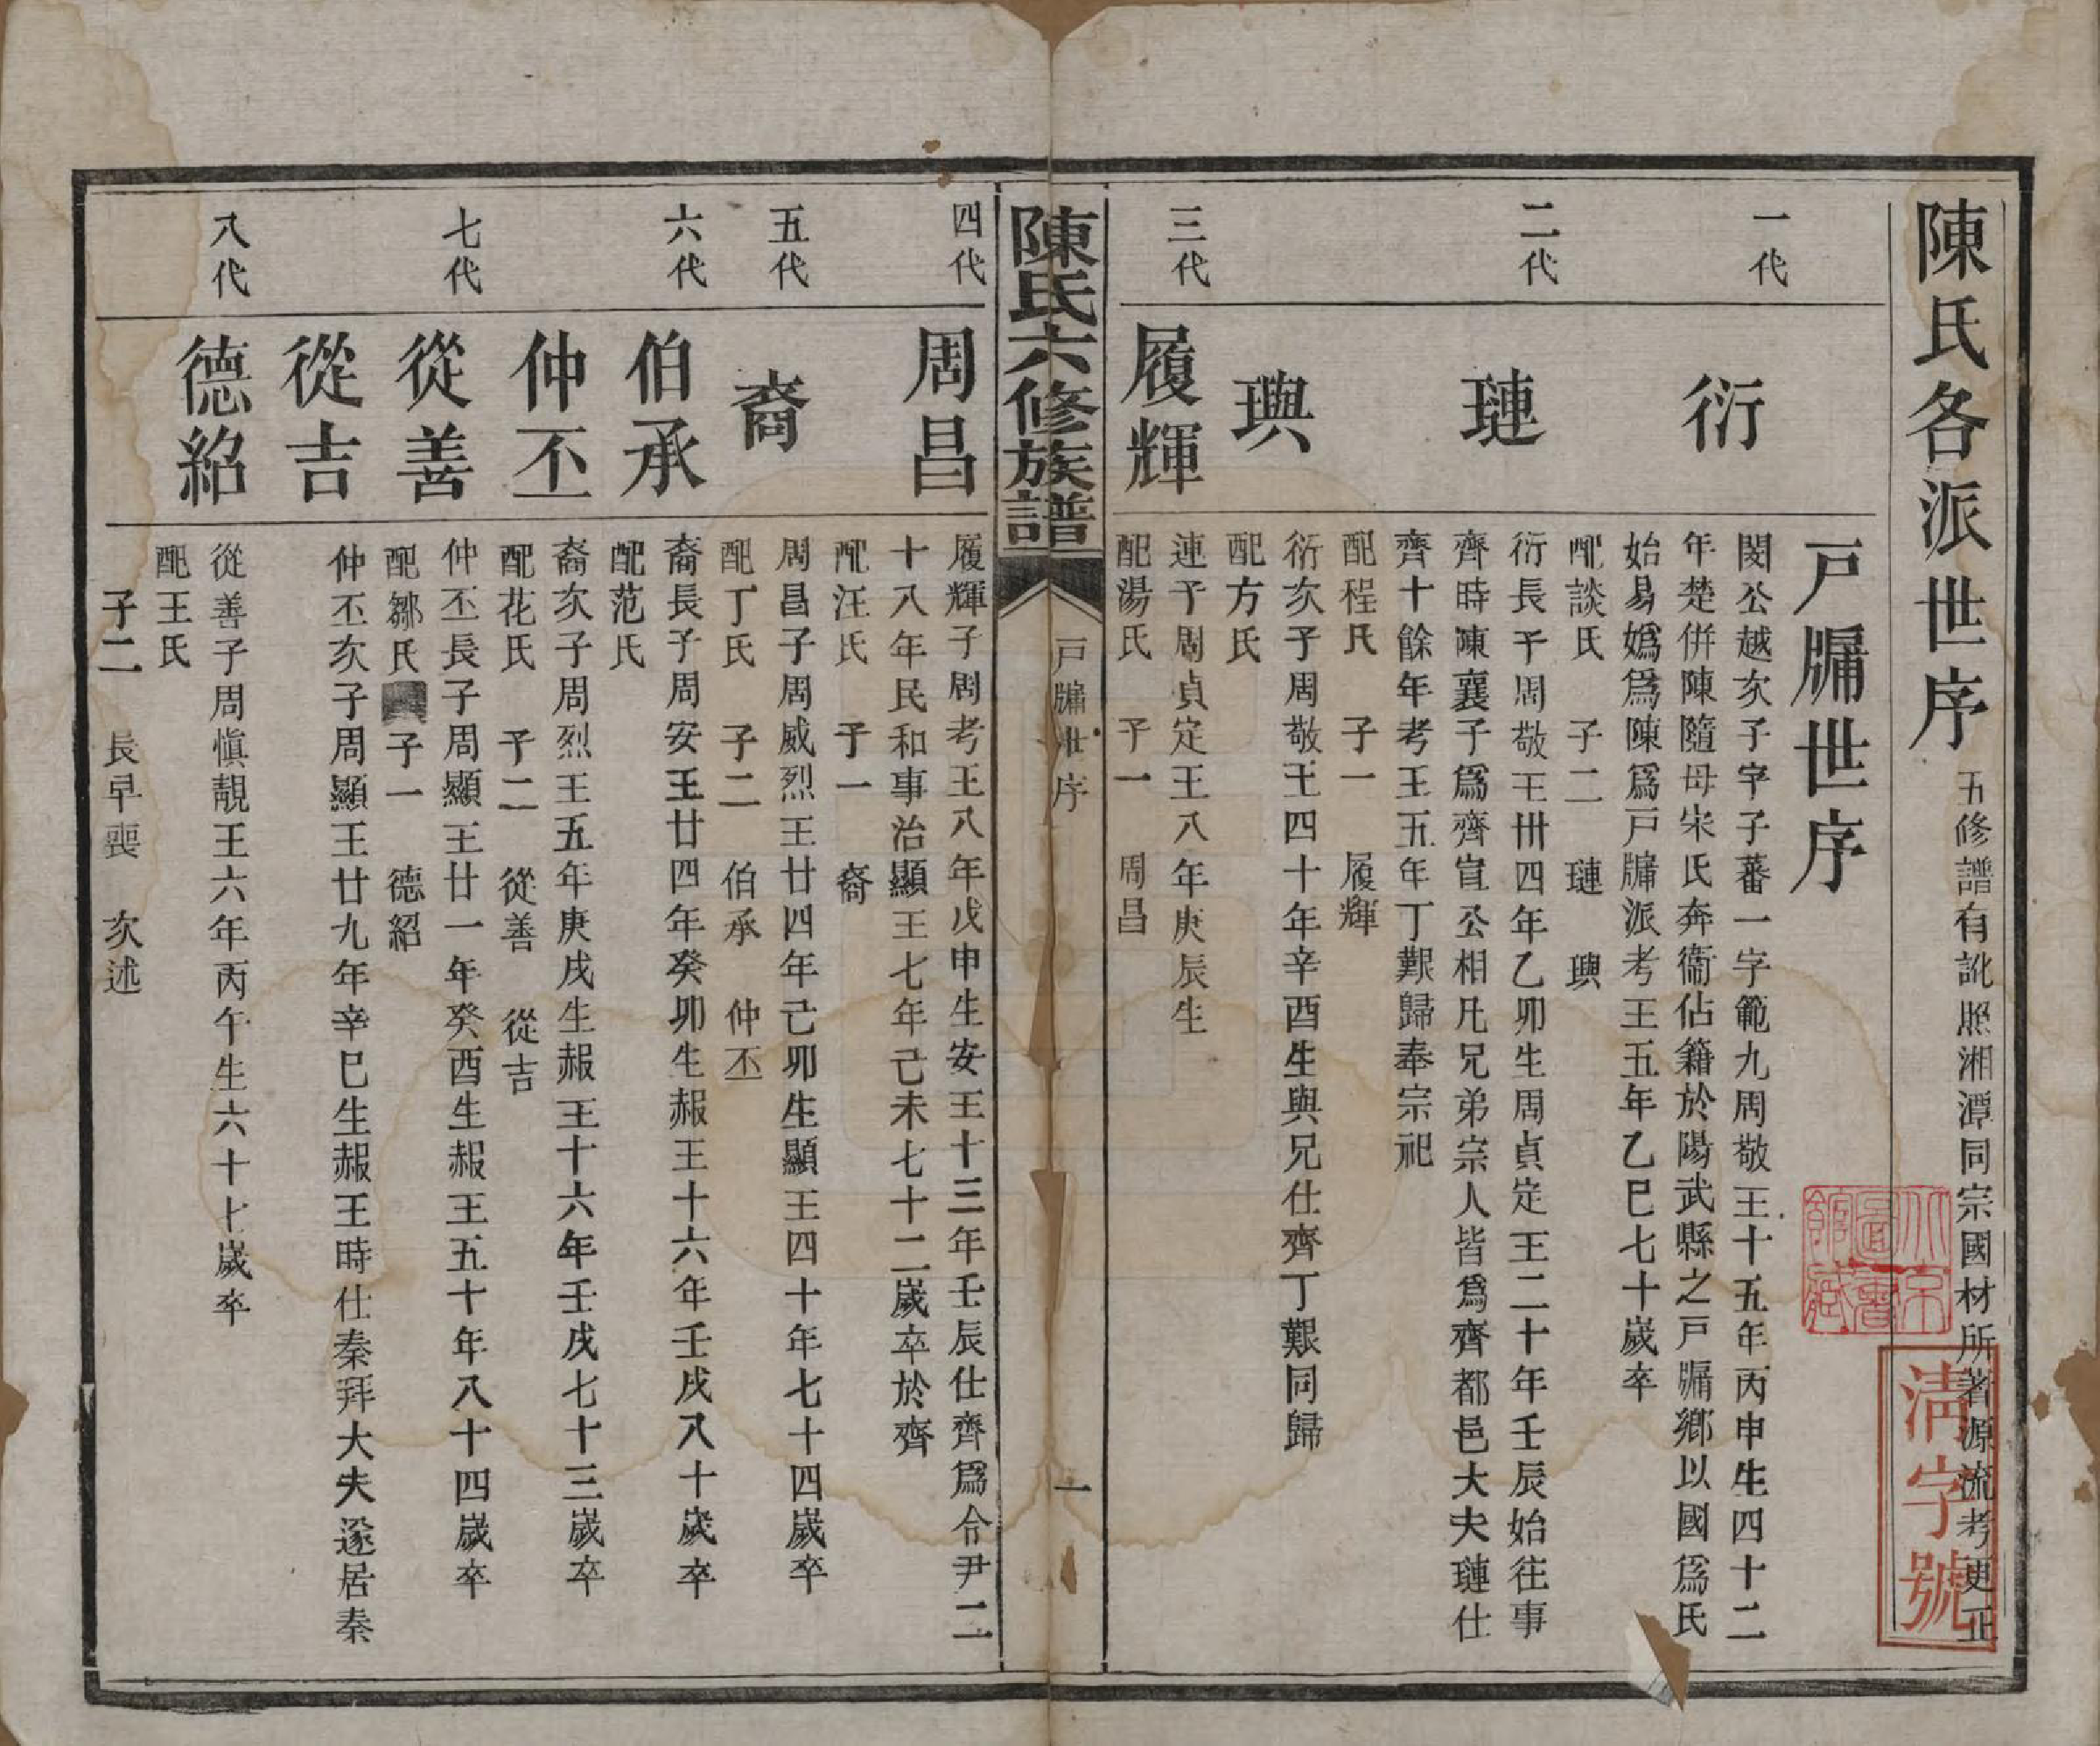 陳氏各派世序 五修譜有訛照湘潭同宗國材所著源流考更正
戸牖世序
一代
衍
閔公越次子字子蕃一字範九周敬王十五年丙申生四十二
年楚併陳隨母宋氏奔衞佔籍於陽武縣之戸牖鄉以國爲氏
始易嬀爲陳爲戸牖派考王五年乙巳七十歲卒
配談氏 子二 璉 璵
二代
璉
衍長子周敬王卌四年乙卯生周貞定王二十年壬辰始往事
齊時陳襄子爲齊宣公相凡兄弟宗人皆爲齊都邑大夫璉仕
齊十餘年考王五年丁艱歸奉宗祀
配程氏 子一 履輝
璵
衍次子周敬王四十年辛酉生與兄仕齊丁艱同歸
配方氏
三代
履輝
連子周貞定王八年庚辰生
配湯氏 子一 周昌
陳氏六修族譜
戸牖世序
一
四代
周昌
履輝子周考王八年戊申生安王十三年壬辰仕齊爲令尹二
十八年民和事治顯王七年己未七十二歲卒於齊
配汪氏 子一 裔
五代
裔
周昌子周威烈王廿四年己卯生顯王四十年七十四歲卒
配丁氏 子二 伯承 仲丕
六代
伯承
裔長子周安王廿四年癸卯生赧王十六年壬戌八十歲卒
配范氏
仲丕
裔次子周烈王五年庚戌生赧王十六年壬戌七十三歲卒
配花氏 子二 從善 從吉
七代
從善
仲丕長子周顯王廿一年癸酉生赧王五十年八十四歲卒
配鄒氏 子一 德紹
從吉
仲丕次子周顯王廿九年辛巳生赧王時仕秦拜大夫遂居秦
八代
德紹
從善子周愼靚王六年丙午生六十七歲卒
配王氏
子二 長早喪 次述
淸字號